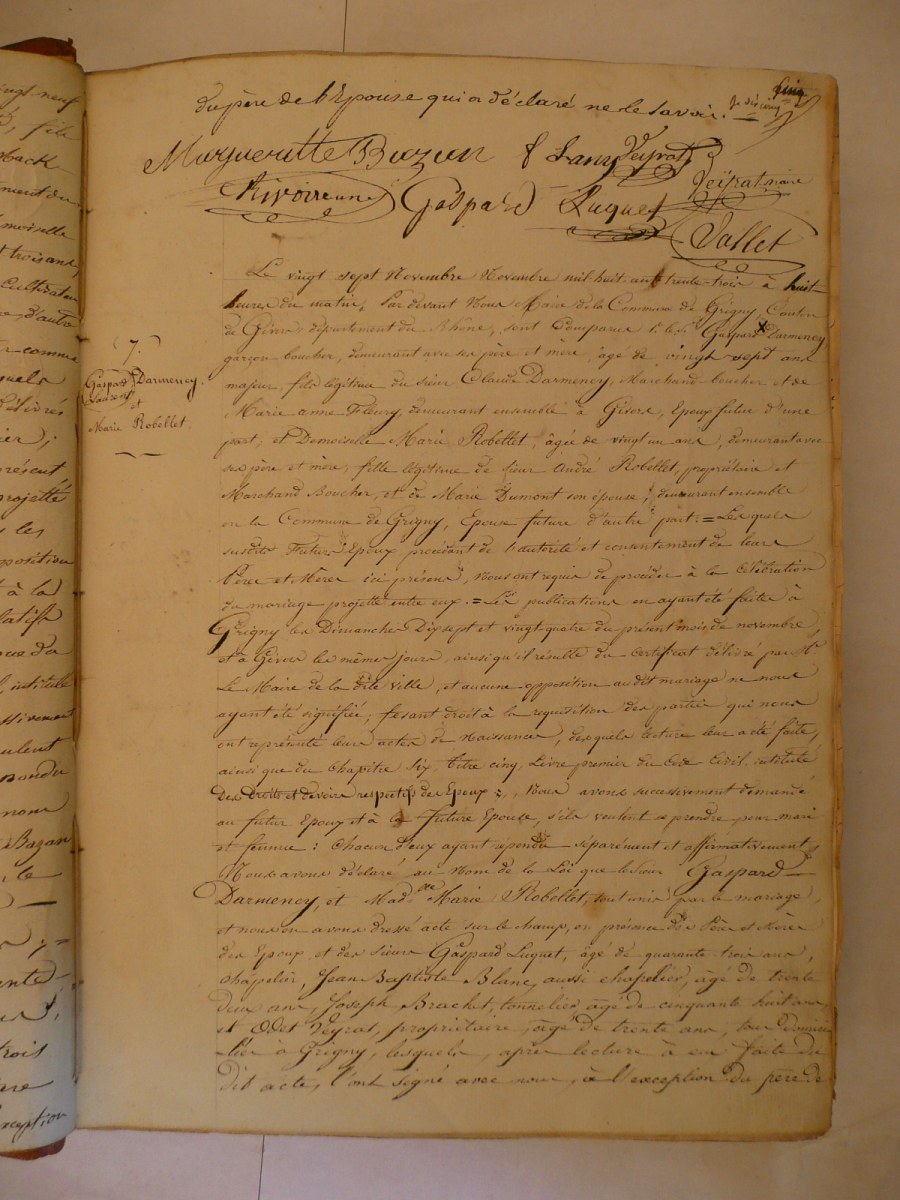 cinq
du père de l'Epouse qui a déclaré ne le savoir. Je dis cinq
Margueritte Buzun f Lany Veyrat
Veÿrat maire
Rivoire Gaspard Luquet
Vallet
Le vingt sept Novembre Novembre mil huit cent trente trois à huit
heures du matin, Par devant Nous Maire de la Commune de Grigny, Canton
de Givors département du Rhône, sont Comparus Gaspard Darmency
garçon boucher, demeurant avec ses père et mère, âgé de vingt sept ans
majeur, fils légitime du sieur Claude Darmency, Marchand boucher et de
Marie anne Fleury, demeurant ensemble à Givors, Epoux futur d'une
part, et Demoiselle Marie Robellet, âgée de vingt un ans, demeurant avec
ses père et mère, fille légitime de sieur André Robellet, propriétaire et
Marchand Boucher, et de Marie Dumont son épouse, demeurant ensemble
en la Commune de Grigny, Epouse future d'autre part. = Lesquels
susdits Futurs Epoux, procédant de l'autorité et consentement de leurs
Père et Mères ici présens, Nous ont requis de procéder à la Célébration
du mariage projetté entre eux. = Les publications en ayant été faites à
Grigny les Dimanches Dix sept et vingt quatre du présent mois de novembre
et à Givors les mêmes jours, ainsi qu'il résulte du Certificat délivré par Mr
Le Maire de la dite ville, et aucune opposition audit mariage ne nous
ayant été signifiée, fesant droit à la requisition des parties qui nous
ont représenté leurs actes de Naissances, desquels lecture leur a été faite,
ainsi que du Chapitre Six, titre cinq, Livre premier du Code Civil, intitulé
Des Droits et devoirs respectifs des Epoux =, Nous avons successivement demandé
au futur Epoux et à la future Epouse, s'ils veulent se prendre pour mari
et femme : Chacun d'eux ayant répondu séparément et affirmativement
Nous avons déclaré au Nom de la Loi que le sieur Gaspard
Darmency, et Madelle Marie Robellet, sont unis par le mariage,
et nous en avons dressé acte sur le champ, en présence des Père et Mères
des Epoux et des sieurs Gaspard Luquet, âgé de quarante trois ans,
chappelier, Jean Baptiste Blanc, aussi chapelier, âgé de trente
deux ans, Joseph Brachet, tonnelier, âgé de cinquante huit ans
et Odet Veyrat, propriétaire, âgé de trente ans, tous domici
-liés à Grigny, lesquels, après lecture à eux faite du
dit acte, l'ont signé avec nous, à l'exception du père de
7.
Gaspard Darmency
et
Marie Robellet